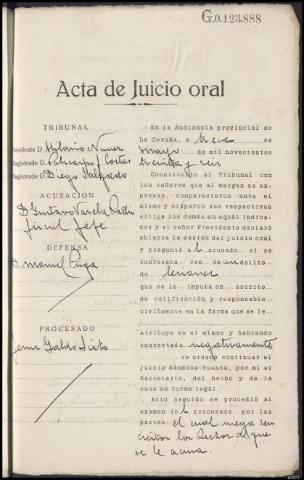 G.0.123.888
Acta de Juicio oral
TRIBUNAL
Presidente D.
Magistrado D.
Magistrado D. Diego Salgado
ACUSACION
D. Gustavo Varela
fiscal Jefe
DEFENSA
D. Manuel Puga
PROCESADO
En la Audiencia provincial de
La Coruña, a trece de
mayo de mil novecientos
treinta y seis
Constituido el Tribunal con
los señores que al margen se ex-
presan, comparecieron ante el
mismo y ocuparon sus respectivos
sitios los demás en aquél indica-
dos y el señor Presidente declaró
abierta la sesión del juicio oral
y preguntó al acusado si se
confesaba reo de un delito
de lesiones
que se le imputa en escrito
de calificación y responsable
civilmente en la forma que se le
atribuye en el mismo y habiendo
contestado negativamente
se ordenó continuar el
juicio dándose cuenta, por mí el
Secretario, del hecho y de la
causa en forma legal.
Acto seguido se procedió al
examen del procesado por las
partes el cual niega sea
los hechos de que
se le acusa.